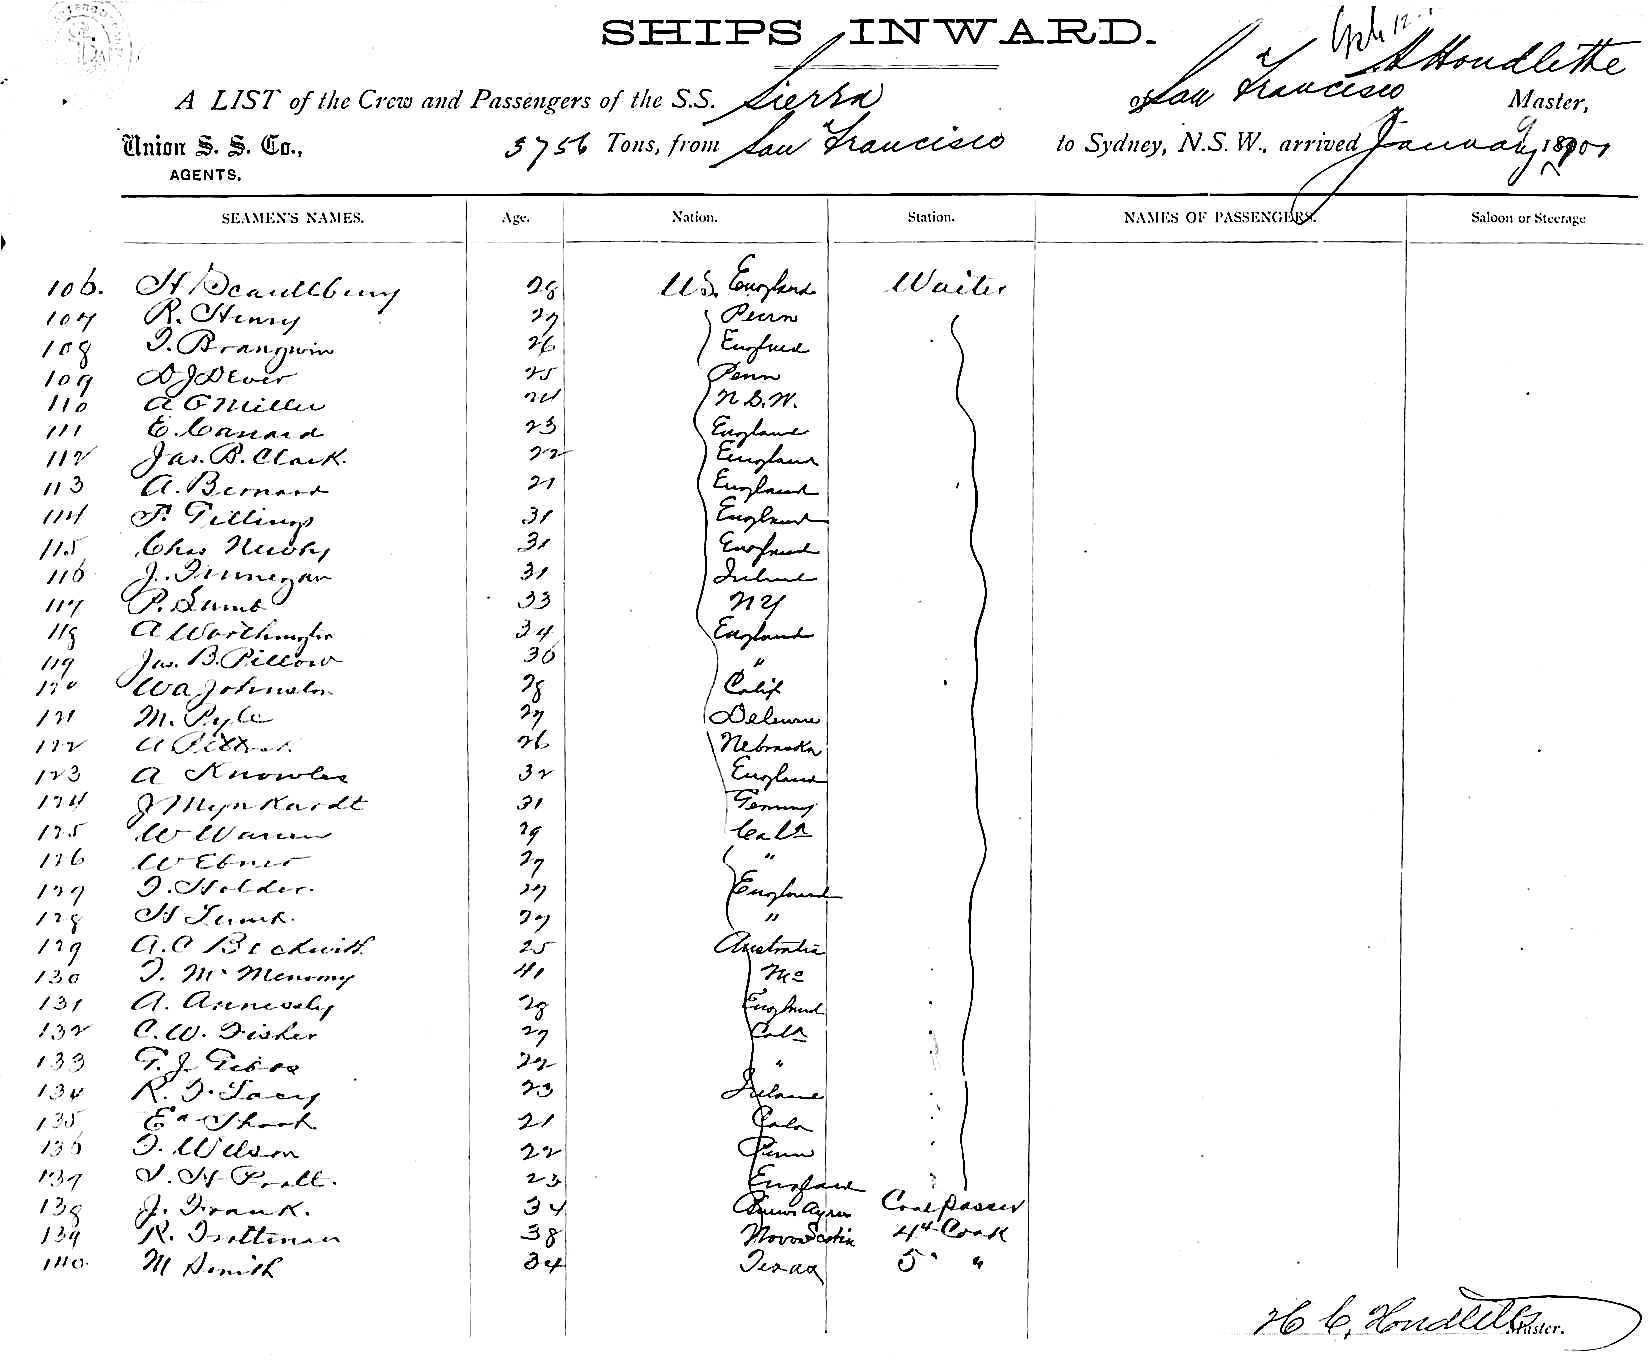 SHIPS INWARD.
A LIST of the Crew and Passengers of the S.S. Sierra of San Francisco A Houdlette Master,
Union S. S. Co., 3756 Tons, from San Francisco to Sydney, N.S.W., arrived January 1901
AGENTS.
SEAMEN'S NAMES. Age. Nation. Station. NAMES OF PASSENGERS. Saloon or Steerage
106. H 28 U.S. England Waiter
107 R. Henry 27 Penn
108 T. Brangwin 26 England
109 D J Dever 25 Penn
110 A G Miller 24 N.S.W.
111 E. Canard 23 England
112 Jas. B. Clark. 22 England
113 A. Bernard 21 England
114 F. Gillings 31 England
115 Chas Newby 31 England
116 J. Finnegan 31 Ireland
117 P. Lamb 33 NY
118 A Worthington 34 England
119 Jas. B. Pillow 36 "
120 W A Johnston 28 Calif
121 M. Pyle 27 Delaware
122 A 26 Nebraska
123 A Knowles 32 England
124 J Mynkardt 31 Germany
125 W Warren 29 Cala
126 W Ebner 27 "
127 F. Holder. 27 England
128 H 27 "
129 A. C Beckwith 25 Australia
130 F. McMenomy 41 Me
131 A. Annesley 28 England
132 C. W. Fisher 27 Cala
133 G. J. Gibbs 22 "
134 R. F. Lacy 23 Ireland
135 Ed Shook 21 Cala
136 F. Wilson 22 Penn
137 J. H Pratt. 23 England
138 J. Frank. 34 Buenos Ayres Coal passer
139 R. Trottman 38 Nova Scotia 4th Cook
140. M Smith 34 Texas 5 "
H C. Houdlette Master.